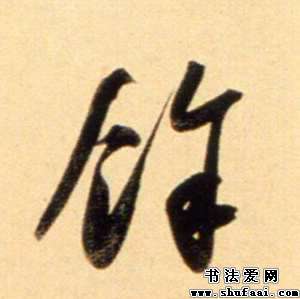 餘
书法爱网
www.shufaai.com